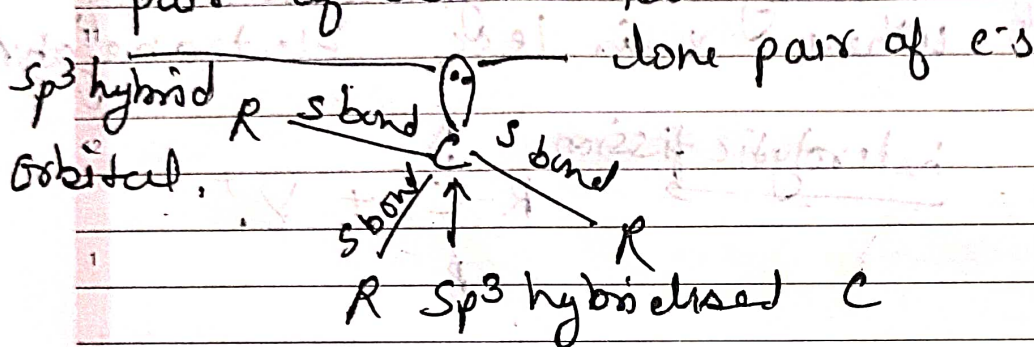 pair of
11
Sp³ hybrid
orbital.
lone pair of e⁻s
R s bond C s bond R
s bond
R Sp³ hybridised C
1